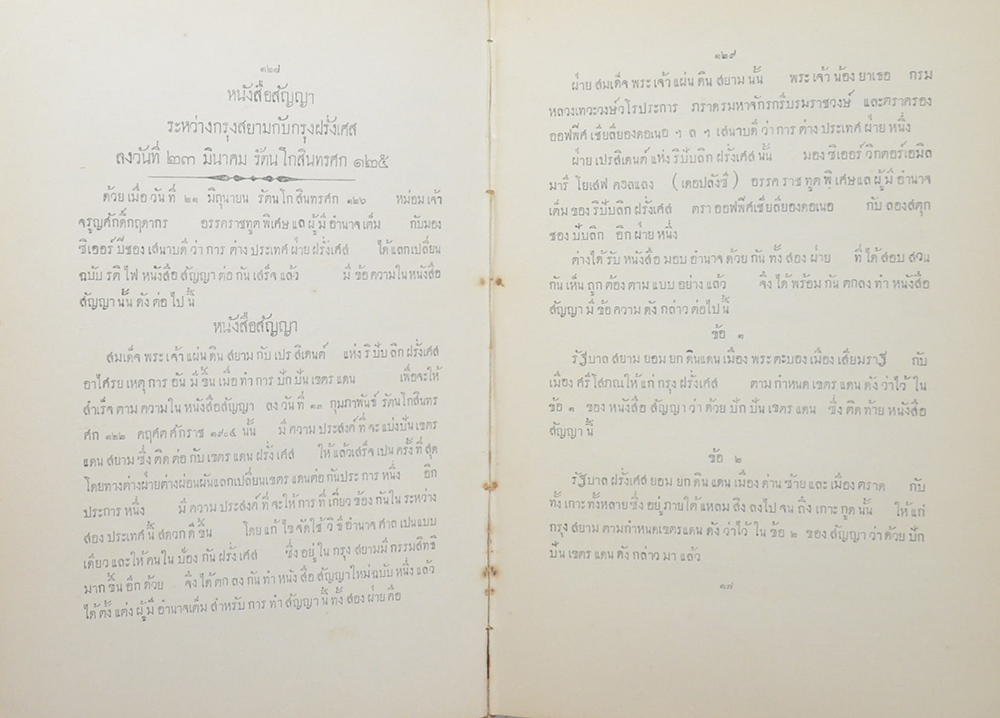 ๑๒๗
หนังสือสัญญา
ระหว่างกรุงสยามกับกรุงฝรั่งเศส
ลงวันที่ ๒๓ มีนาคม รัตนโกสินทรศก ๑๒๕
ด้วยเมื่อวันที่ ๒๑ มิถุนายน รัตนโกสินทรศก ๑๒๖ หม่อมเจ้า
จรูญศักดิ์กฤดากร อรรคราชทูตพิเศษแลผู้มีอำนาจเต็ม กับมอง
ซิเออร์ปิชอง เสนาบดีว่าการต่างประเทศฝ่ายฝรั่งเศส ได้แลกเปลี่ยน
ฉบับรติไฟหนังสือสัญญาต่อกันเสร็จแล้ว มีข้อความในหนังสือ
สัญญานั้นดังต่อไปนี้
หนังสือสัญญา
สมเด็จพระเจ้าแผ่นดินสยามกับเปรสิเดนต์ แห่งริปับลิกฝรั่งเศส
อาไศรยเหตุการอันมีขึ้นเมื่อทำการปักปันเขตรแดน เพื่อจะให้
สำเร็จตามความในหนังสือสัญญา ลงวันที่ ๑๓ กุมภาพันธ์ รัตนโกสินทร
ศก ๑๒๒ คฤศตศักราช ๑๙๐๔ นั้น มีความประสงค์ที่จะแบ่งปันเขตร
แดนสยามซึ่งติดต่อกับเขตรแดนฝรั่งเศส ให้แล้วเสร็จเปนครั้งที่สุด
โดยทางต่างฝ่ายต่างผ่อนผันแลกเปลี่ยนเขตรแดนต่อกันประการหนึ่ง อีก
ประการหนึ่ง มีความประสงค์ที่จะให้การที่เกี่ยวข้องกันในระหว่าง
สองประเทศนี้สดวกดีขึ้น โดยแก้ไขจัดใช้วิธีอำนาจศาลเปนแบบ
เดียวและให้คนในป้องกันฝรั่งเศส ซึ่งอยู่ในกรุงสยามมีกรรมสิทธิ
มากขึ้นอีกด้วย จึงได้ตกลงกันทำหนังสือสัญญาใหม่ฉบับหนึ่งแล้ว
ได้ตั้งแต่งผู้มีอำนาจเต็มสำหรับการทำสัญญานี้ทั้งสองฝ่ายคือ
๑๒๙
ฝ่ายสมเด็จพระเจ้าแผ่นดินสยามนั้น พระเจ้าน้องยาเธอ กรม
หลวงเทวะวงษ์วโรประการ ภราดรมหาจักรกรีบรมราชวงษ์ และตราครอง
ออฟฟีศเชียลียองดอเนอ ฯ ล ฯ เสนาบดีว่าการต่างประเทศฝ่ายหนึ่ง
ฝ่ายเปรสิเดนต์แห่งริปับลิกฝรั่งเศสนั้น มองซิเออร์วิกตอร์เอมิล
มารีโยเสฟคอลแลง (เดอปลังซี) อรรคราชทูตพิเศษแลผู้มีอำนาจ
เต็มของริปับลิกฝรั่งเศส ตราออฟฟีศเชียลียองดอเนอ กับลองสตุก
ชองปับลิก อีกฝ่ายหนึ่ง
ต่างได้รับหนังสือมอบอำนาจด้วยกันทั้งสองฝ่าย ที่ได้สอบสวน
กันเห็นถูกต้องตามแบบอย่างแล้ว จึงได้พร้อมกันตกลงทำหนังสือ
สัญญามีข้อความดังกล่าวต่อไปนี้
ข้อ ๑
รัฐบาลสยามยอมยกดินแดนเมืองพระตะบองเมืองเสียมราฐ กับ
เมืองศรีโสภณให้แก่กรุงฝรั่งเศส ตามกำหนดเขตรแดนดังว่าไว้ใน
ข้อ ๑ ของหนังสือสัญญาว่าด้วยปักปันเขตรแดน ซึ่งติดท้ายหนังสือ
สัญญานี้
ข้อ ๒
รัฐบาลฝรั่งเศสยอมยกดินแดนเมืองด่านซ้ายและเมืองตราด กับ
ทั้งเกาะทั้งหลายซึ่งอยู่ภายใต้แหลมสิงลงไปจนถึงเกาะกูดนั้น ให้แก่
กรุงสยามตามกำหนดเขตรแดนดังว่าไว้ในข้อ ๒ ของสัญญาว่าด้วยปัก
ปันเขตรแดนดังกล่าวมาแล้ว
๑๗